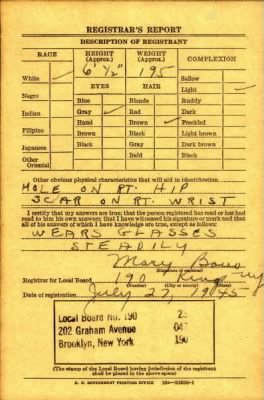 REGISTRAR'S REPORT
DESCRIPTION OF REGISTRANT
RACE HEIGHT (Approx.) WEIGHT (Approx.) COMPLEXION
6' ½" 195
White ✓ Sallow
EYES HAIR Light ✓
Negro Blue Blonde Ruddy
Indian Gray ✓ Red Dark
Hazel Brown ✓ Freckled
Filipino Brown Black Light brown
Japanese Black Gray Dark brown
Other Oriental Bald Black
Other obvious physical characteristics that will aid in identification
MOLE ON RT. HIP
SCAR ON RT. WRIST
I certify that my answers are true; that the person registered has read or has had
read to him his own answers; that I have witnessed his signature or mark and that
all of his answers of which I have knowledge are true, except as follows:
WEARS GLASSES
STEADILY
Mary
(Signature of registrar)
Registrar for Local Board 190 Kings NY
(Number) (City or county) (State)
Date of registration July 27 1945
Local Board No. 190 
202 Graham Avenue 047
Brooklyn, New York 190
(The stamp of the Local Board having jurisdiction of the registrant
shall be placed in the above space)
U. S. GOVERNMENT PRINTING OFFICE